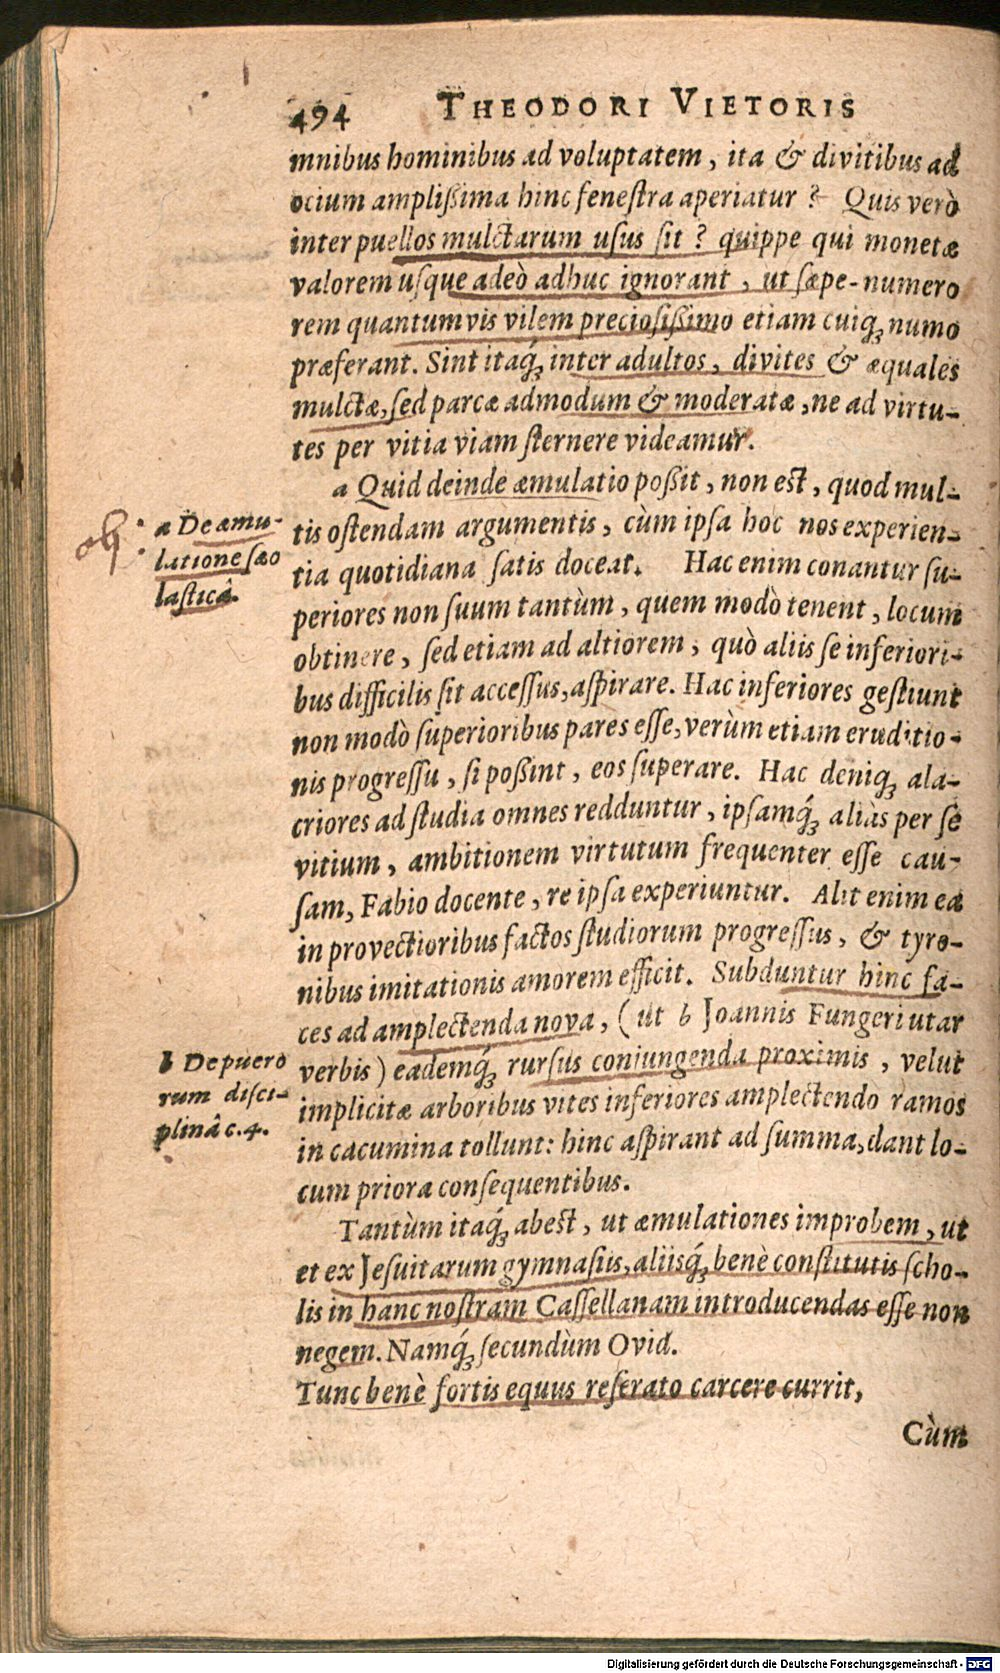 494 THEODORI VIETORIS
mnibus hominibus ad voluptatem, ita & divitibus ad
ocium amplißima hinc fenestra aperiatur? Quis verò
inter puellos mulctarum usus sit? quippe qui monetæ
valorem usque adeò adhuc ignorant, ut sæpe-numero
rem quantumvis vilem preciosißimo etiam cuiq; numo
præferant. Sint itaq́; inter adultos, divites & æquales
mulctæ, sed parcæ admodum & moderatæ, ne ad virtu-
tes per vitia viam sternere videamur.
a Quid deinde æmulatio poßit, non est, quod mul-
tis ostendam argumentis, cùm ipsa hoc nos experien-
tia quotidiana satis doceat. Hac enim conantur su-
periores non suum tantùm, quem modò tenent, locum
obtinere, sed etiam ad altiorem, quò aliis se inferiori-
bus difficilis sit accessus, aspirare. Hac inferiores gestiunt
non modò superioribus pares esse, verùm etiam eruditio-
nis progressu, si poßint, eos superare. Hac deniq; ala-
criores ad studia omnes redduntur, ipsamq́; aliàs per se
vitium, ambitionem virtutum frequenter esse cau-
sam, Fabio docente, re ipsa experiuntur. Alit enim ea
in provectioribus factos studiorum progressus, & tyro-
nibus imitationis amorem efficit. Subduntur hinc fa-
ces ad amplectenda nova, (ut b Joannis Fungeri utar
verbis) eademq́; rursus coniungenda proximis, velut
implicitæ arboribus vites inferiores amplectendo ramos
in cacumina tollunt: hinc aspirant ad summa, dant lo-
cum priora consequentibus.
Tantùm itaq́; abest, ut æmulationes improbem, ut
et ex Jesuitarum gymnasiis, aliisq́; benè constitutis scho-
lis in hanc nostram Cassellanam introducendas esse non
negem. Namq́; secundùm Ovid.
Tunc benè fortis equus reserato carcere currit,
Cùm
a De æmu-
latione sco
lasticâ.
b De puero
rum disci-
plinâ c. 4.
Digitalisierung gefördert durch die Deutsche Forschungsgemeinschaft - DFG